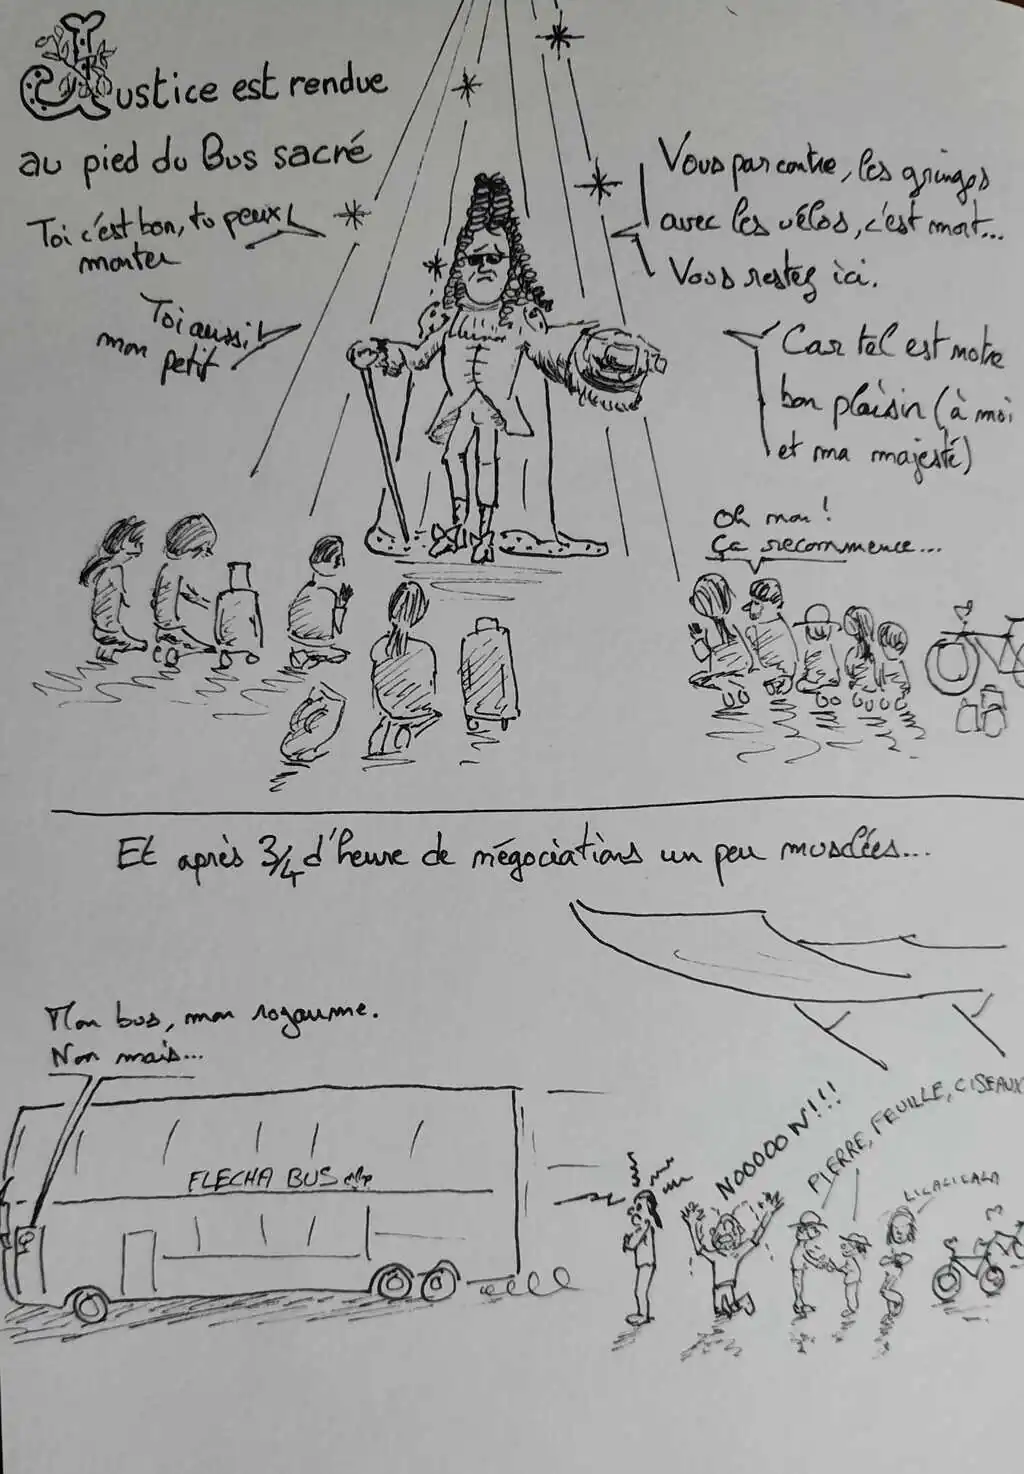 Justice est rendue
au pied du Bus sacré
Toi c'est bon, tu peux
monter
Toi aussi
mon petit
Vous par contre, les gringos
avec les vélos, c'est mort...
Vous restez ici.
Car tel est notre
bon plaisir (à moi
et ma majesté)
Oh non !
Ça recommence...
Et après 3/4 d'heure de négociations un peu musclées...
Mon bus, mon royaume.
Non mais...
FLECHA BUS
NOOOOON!!!
PIERRE, FEUILLE, CISEAUX
LICALICALA